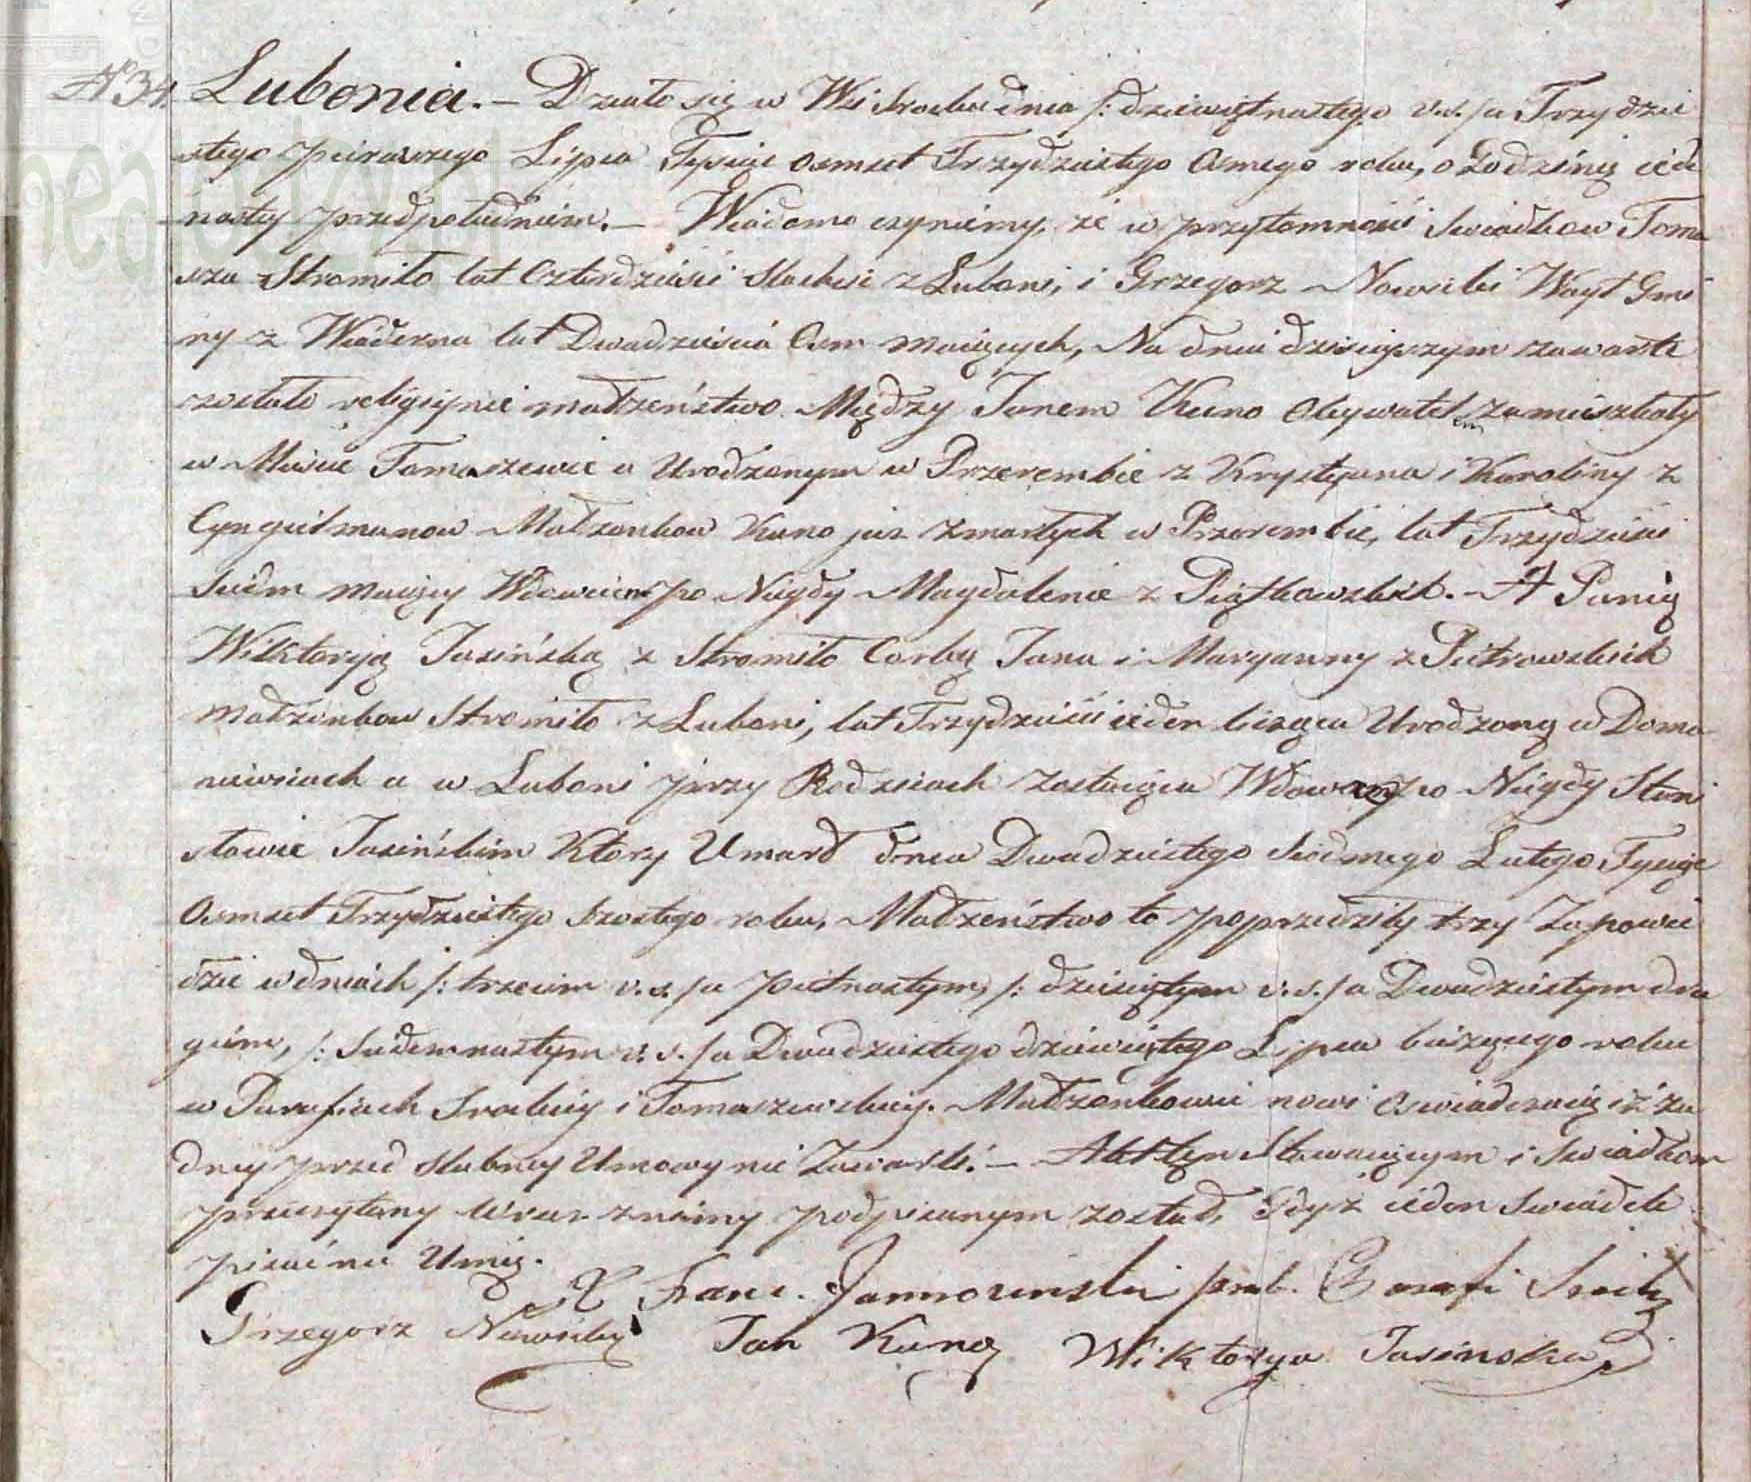 N 34. Lubonia. – Działo się w Wsi Srocku dnia /: dziewiętnastego v.s. /a Trzydzie
stego pierwszego Lipca Tysiąc osmset Trzydziestego Osmego roku, o Godzinię iede
nastey przedpołudniem. – Wiadomo czyniemy, że w przytomności Swiadkow Toma
sza Stromiło lat Czterdzieści Slachcic z Luboni, i Grzegorz Nowicki Wayt Gmi
ny z Wiaderna lat Dwadzieścia Osm maiących, Na dniu dzisieyszym zawarte
zostało religiynie małzeństwo Między Janem Kuno Obywatelem zamieszkały
w Mieście Tomaszewie a Urodzonym w Przerembie z Krystyana i Karoliny z
Cyngielmanow Małzonkow Kuno juz zmarłych w Przerembie, lat Trzydzieści
siedm maiący Wdowcem po Niegdy Magdalenie z Piątkowskich. – A Panią
Wiktoryą Jasińską z Stromiło Corką Jana i Maryanny z Piotrowskich
małzonkow Stromiło z Luboni, lat Trzydzieści ieden licząca Urodzoną w Doma
niewicach a w Luboni przy Rodzicach zostaiąca Wdową po Niegdy Stani
sławie Jasińskim Ktory Umarł dnia Dwudziestego siodmego Lutego Tysiąc
Osmset Trzydziestego szostego roku, Małzeństwo to poprzedziły trzy Zapowie
dzie w dniach /: trzecim v.s. /a pietnastym, /: dziesiątym v.s. /a Dwudziestym dru
giem, /: siedemnastym v.s. /a Dwudziestego dziewiątego Lipca bieżącego roku
w Parafiach Srockiey i Tomaszewskiey. Małzonkowie nowi Oswiadczaią iż ża
dney przed slubney Umowy nie Zawarli. – Akt ten Stawaiącym i Swiadkom
przeczytany wraz z niemy podpisanym został, Gdyż ieden Swiadek
pisać nie Umię.
X Franc. Jannowiński prob. Parafi Srocky
Grzegorz Nowicky Jan Kuno Wiktorya Jasinska